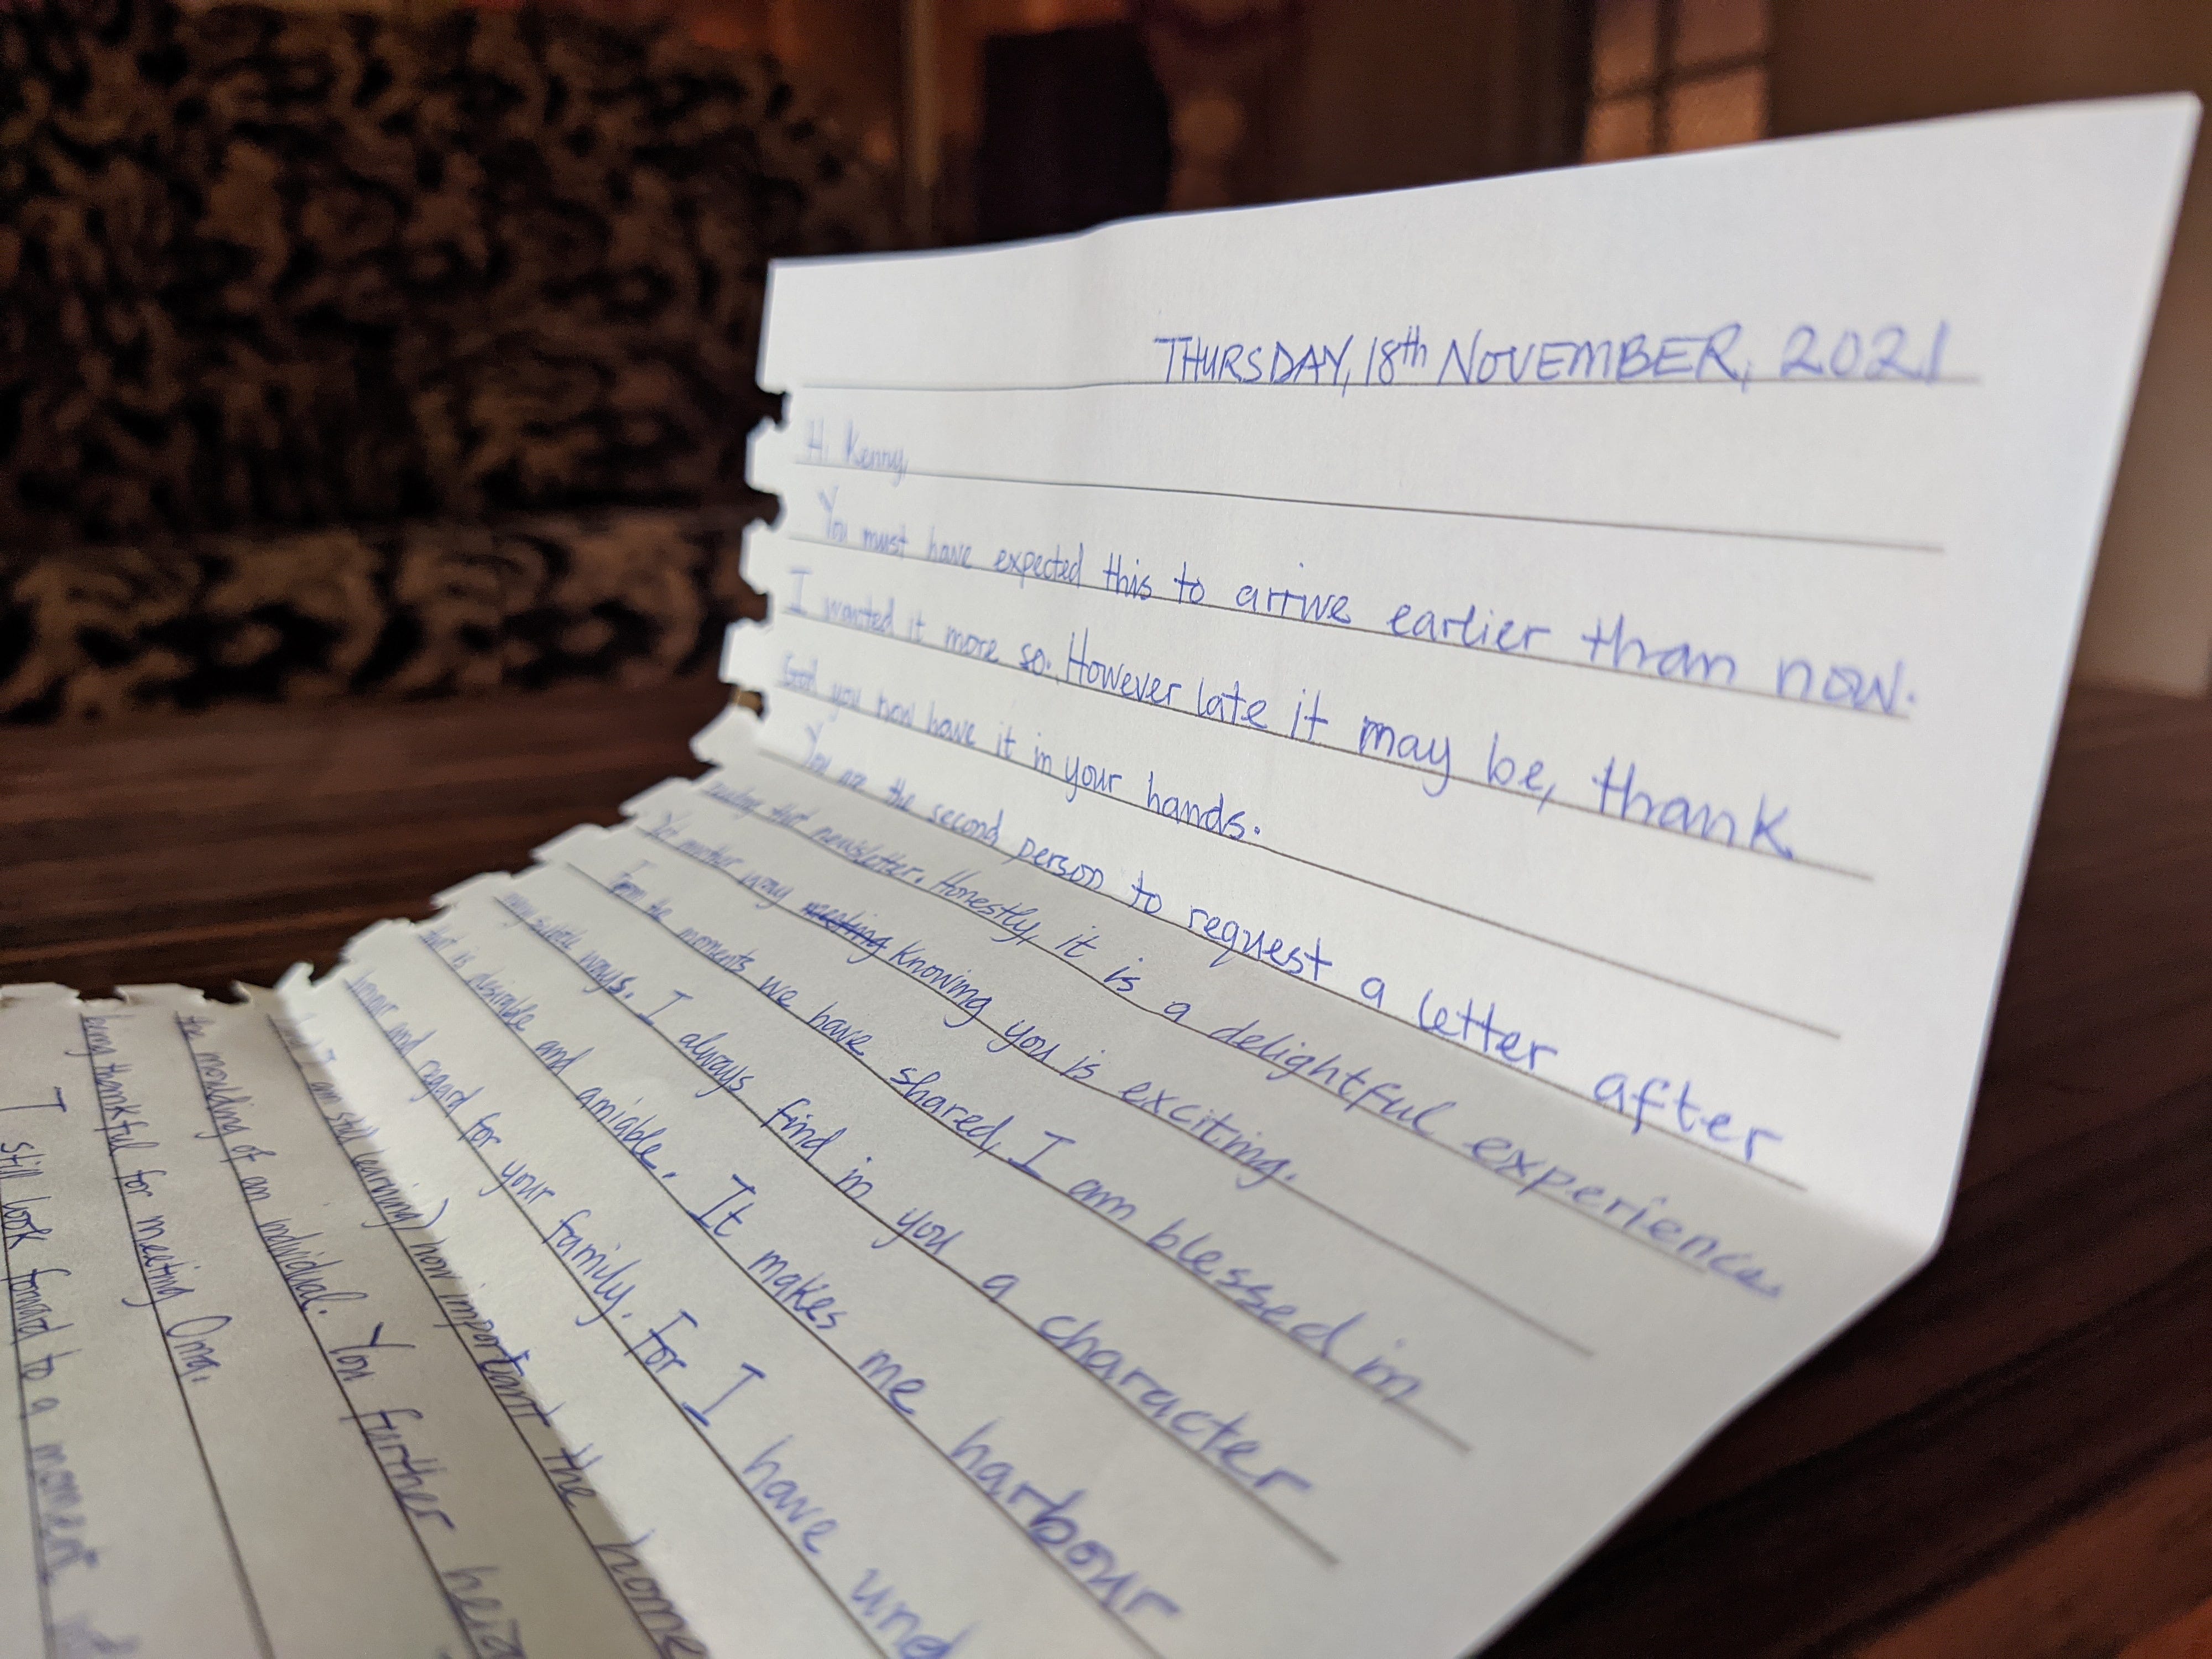 THURSDAY, 18th NOVEMBER, 2021
Hi Kenny,
You must have expected this to arrive earlier than now.
I wanted it more so. However late it may be, thank
God you now have it in your hands.
You are the second person to request a letter after
reading that newsletter. Honestly, it is a delightful experience.
You another way meeting knowing you is exciting.
From the moments we have shared, I am blessed in
many subtle ways. I always find in you a character
that is desirable and amiable. It makes me harbour
honour and regard for your family. For I have und
I am still learning) how important the home
the moulding of an individual. You further
being thankful for meeting Ona.
I still look forward to a moment